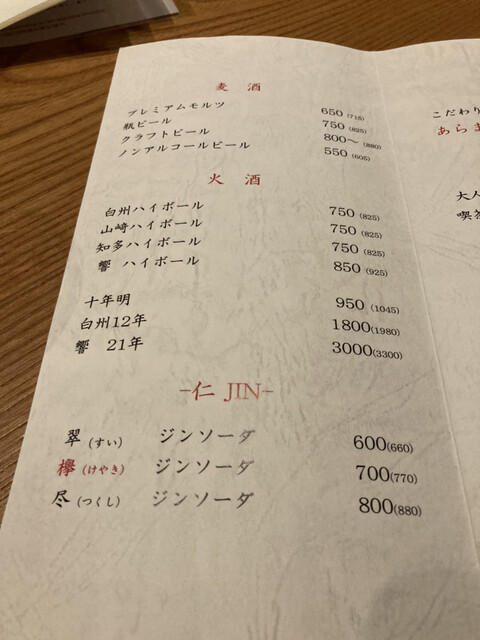 麦酒
プレミアムモルツ 650 (715)
瓶ビール 750 (825)
クラフトビール 800〜 (880)
ノンアルコールビール 550 (605)
火酒
白州ハイボール 750 (825)
山崎ハイボール 750 (825)
知多ハイボール 750 (825)
響 ハイボール 850 (925)
十年明 950 (1045)
白州12年 1800(1980)
響 21年 3000(3300)
-仁 JIN-
翠 (すい) ジンソーダ 600(660)
欅 (けやき) ジンソーダ 700(770)
尽 (つくし) ジンソーダ 800(880)
こだわり
あら
大人
喫